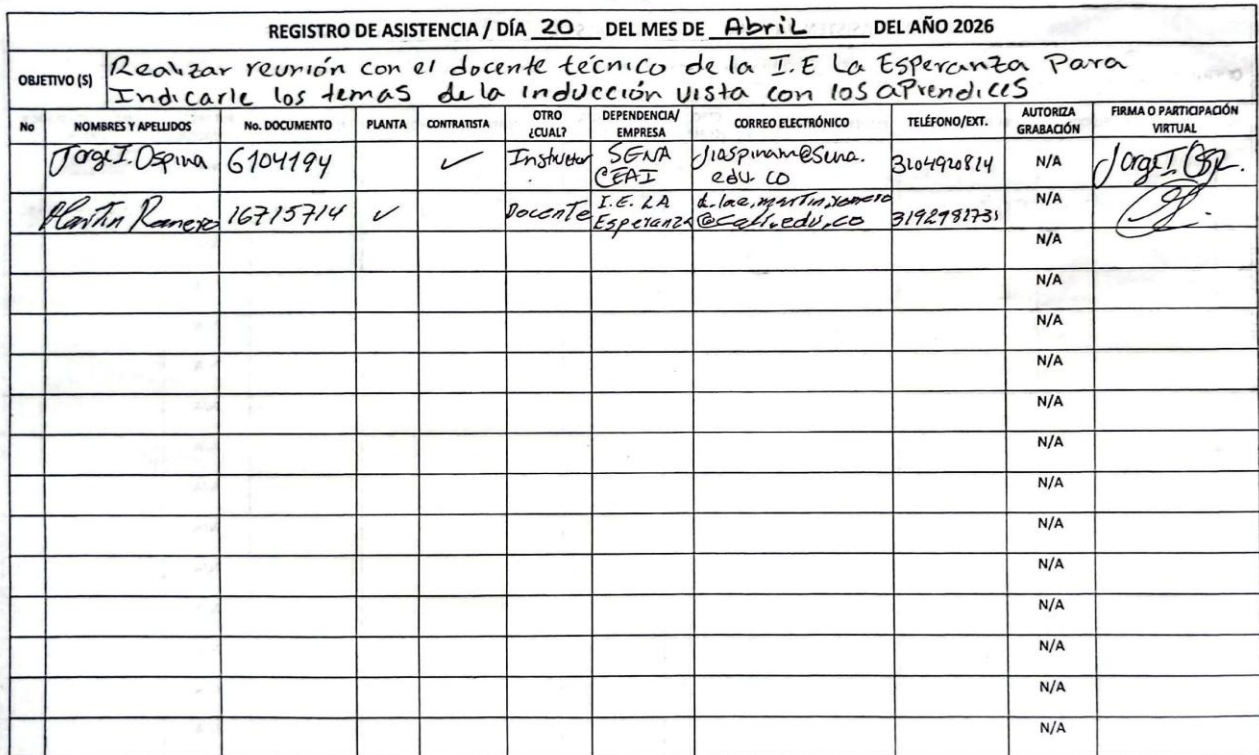 REGISTRO DE ASISTENCIA / DÍA 20 DEL MES DE Abril DEL AÑO 2026
OBJETIVO (S) Realizar reunión con el docente técnico de la I.E La Esperanza Para
Indicarle los temas de la inducción vista con los aprendices
No NOMBRES Y APELLIDOS No. DOCUMENTO PLANTA CONTRATISTA OTRO ¿CUAL? DEPENDENCIA/ EMPRESA CORREO ELECTRÓNICO TELÉFONO/EXT. AUTORIZA GRABACIÓN FIRMA O PARTICIPACIÓN VIRTUAL
Jorge I. Ospina 6104194 ✓ Instructor SENA CEAI jiospinam@sena.edu.co 3204920814 N/A Jorge I.
Martin Romero 16715714 ✓ Docente I.E. LA Esperanza @cali.edu.co N/A
N/A
N/A
N/A
N/A
N/A
N/A
N/A
N/A
N/A
N/A
N/A
N/A
N/A